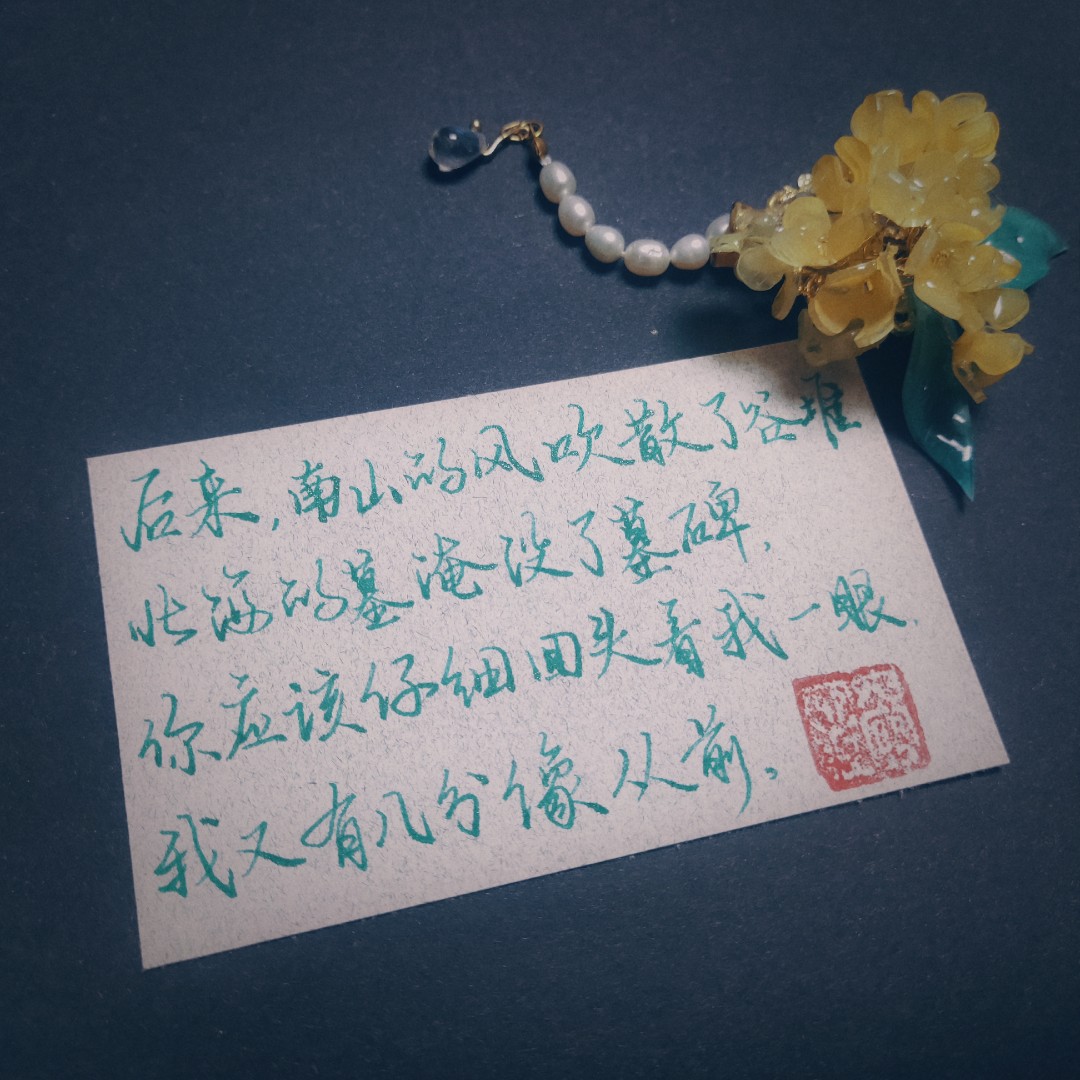 后来,南山的风吹散了谷堆
北海的墓淹没了墓碑,
你应该仔细回头看我一眼,
我又有几分像从前。